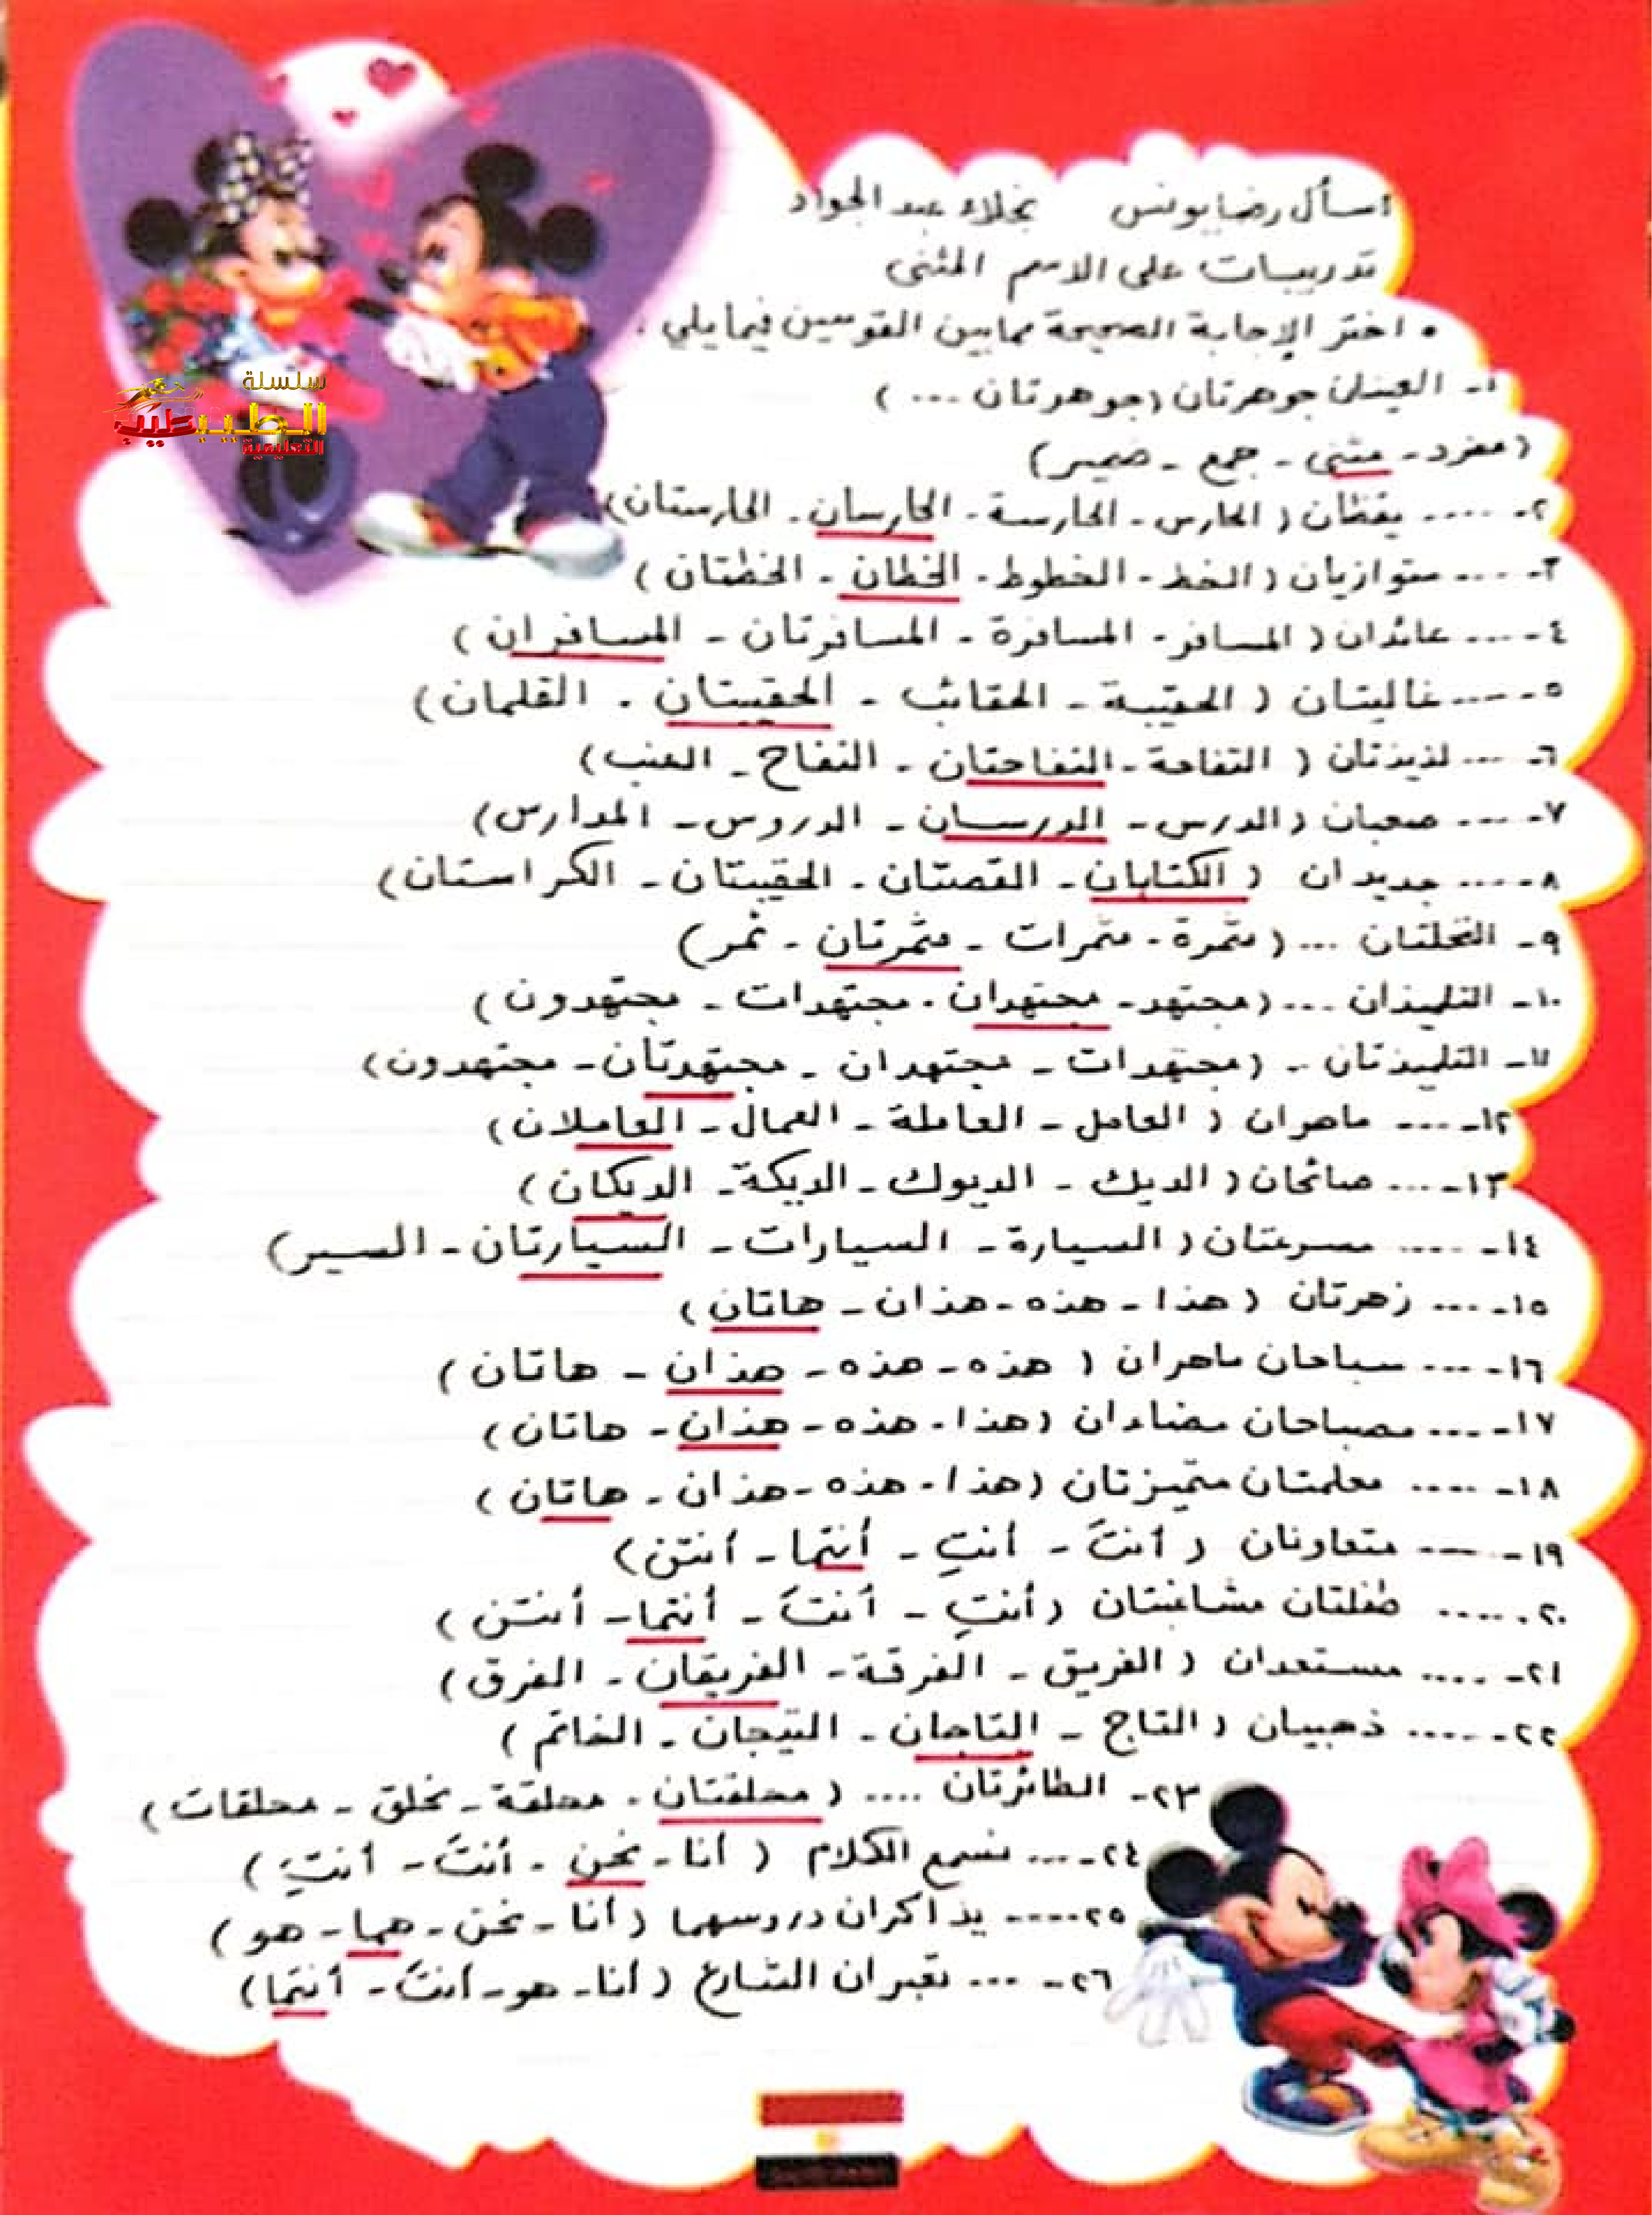 اسأل رضا يونس نجلاء عبد الجواد
تدريبات على الاسم المثنى
• اختر الإجابة الصحيحة مما بين القوسين فيما يلي :
١- العينان جوهرتان (جوهرتان ... )
(مفرد - مثنى - جمع - ضمير)
٢- .... يقظان ( الحارس - الحارسة - الحارسان - الحارستان)
٣- .... متوازيان ( الخط - الخطوط - الخطان - الخطتان )
٤- .... عائدان ( المسافر - المسافرة - المسافرتان - المسافران )
٥- .... غاليتان ( الحقيبة - الحقائب - الحقيبتان - القلمان)
٦- ... لذيذتان ( التفاحة - التفاحتان - التفاح - العنب)
٧- .... صعبان ( الدرس - الدرسان - الدروس - المدارس)
٨- .... جديدان ( الكتابان - القصتان - الحقيبتان - الكراستان)
٩- النخلتان ... ( مثمرة - مثمرات - مثمرتان - ثمر)
١٠- التلميذان ... (مجتهد - مجتهدان - مجتهدات - مجتهدون )
١١- التلميذتان .. (مجتهدات - مجتهدان - مجتهدتان - مجتهدون)
١٢- ... ماهران ( العامل - العاملة - العمال - العاملان)
١٣- ... صائحان ( الديك - الديوك - الديكة - الديكان )
١٤- .... مسرعتان ( السيارة - السيارات - السيارتان - السير)
١٥- ... زهرتان ( هذا - هذه - هذان - هاتان )
١٦- ... سباحان ماهران ( هذه - هذه - هذان - هاتان )
١٧- ... مصباحان مضاءان (هذا - هذه - هذان - هاتان )
١٨- .... معلمتان متميزتان (هذا - هذه - هذان - هاتان )
١٩- .... متعاونان ( أنتَ - أنتِ - أنتما - أنتن)
٢٠. .... طفلتان مشاغبتان ( أنتِ - أنتَ - أنتما - أنتن )
٢١- .... مستعدان ( الفريق - الفرقة - الفريقان - الفرق )
٢٢- .... ذهبيان ( التاج - التاجان - التيجان - الخاتم )
٢٣- الطائرتان .... ( محلقتان - محلقة - تحلق - محلقات )
٢٤- ... نسمع الكلام ( أنا - نحن - أنتَ - أنتِ )
٢٥ .... يذاكران دروسهما ( أنا - نحن - هما - هو )
٢٦- ... تعبران الشارع ( أنا - هو - أنتَ - أنتما )
سلسلة
الطيب طيب
التعليمية